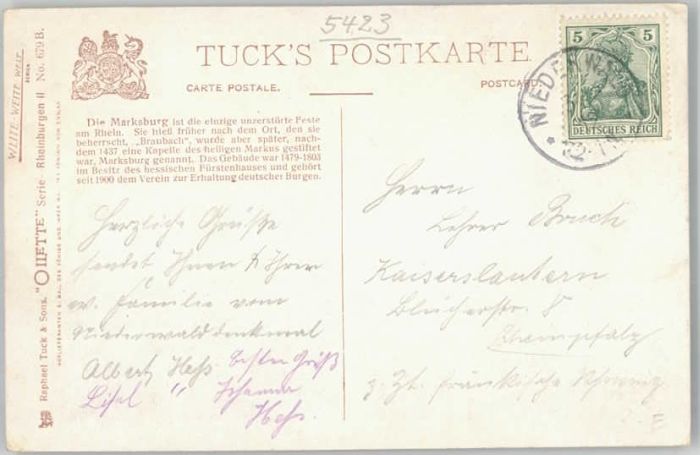 5423
TUCK'S POSTKARTE.
CARTE POSTALE.
POSTCARD.
5 5
DEUTSCHES REICH
NIED
Die Marksburg ist die einzige unzerstörte Feste
am Rhein. Sie hieß früher nach dem Ort, den sie
beherrscht, „Braubach", wurde aber später, nach-
dem 1437 eine Kapelle des heiligen Markus gestiftet
war, Marksburg genannt. Das Gebäude war 1479-1803
im Besitz des hessischen Fürstenhauses und gehört
seit 1900 dem Verein zur Erhaltung deutscher Burgen.
Herzliche Grüße
sendet Ihnen & Ihrer
w. Familie vom
Niederwalddenkmal
Albert Hess beste Grüß
Lisel " Johanna
Hess.
Herrn
Lehrer Bruch
Kaiserslautern
Blücherstr. 8
Rheinpfalz
z. Zt. fränkische Schweiz
WEITE-WEITE WELT
SERIEN
Raphael Tuck & Sons, "OILETTE" Serie - Rheinburgen II No. 679 B.